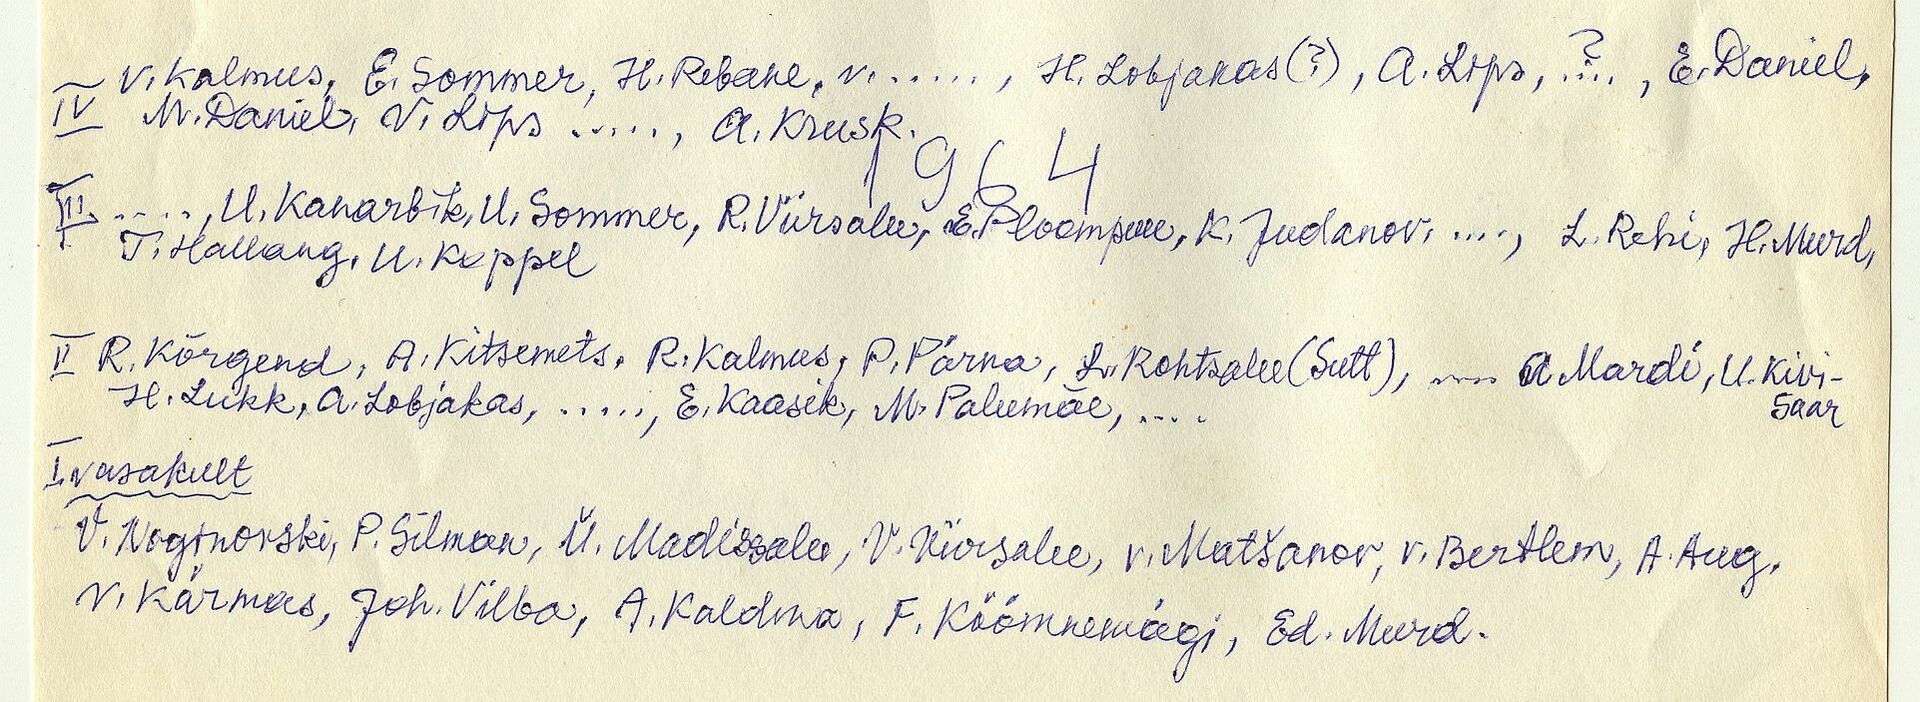 V. Kalmus, E. Sommer, H. Rebane, V. ......, H. Lobjakas(?), A. Lips, ..?.., E. Daniel,
IV M. Daniel, V. Lips ....., A. Krusk.
1964
III ....., U. Kanarbik, U. Sommer, R. Viirsalu, E. Ploompuu, K. Judanov, ...., L. Rehi, H. Murd,
T. Hallang, U. Koppel
II R. Kõrgend, A. Kitsemets, R. Kalmus, P. Pärna, L. Kohtsalu (Sutt), ..... A. Mardi, U. Kivi-
H. Lukk, A. Lobjakas, ....., E. Kaasik, M. Palumäe, .... saar
I vasakult
V. Noginovski, P. Silman, Ü. Madissalu, V. Viirsalu, V. Matšanov, V. Bertlem, A. Aug,
V. Kärmas, Joh. Vilba, A. Kaldma, F. Köömnemägi, Ed. Murd.